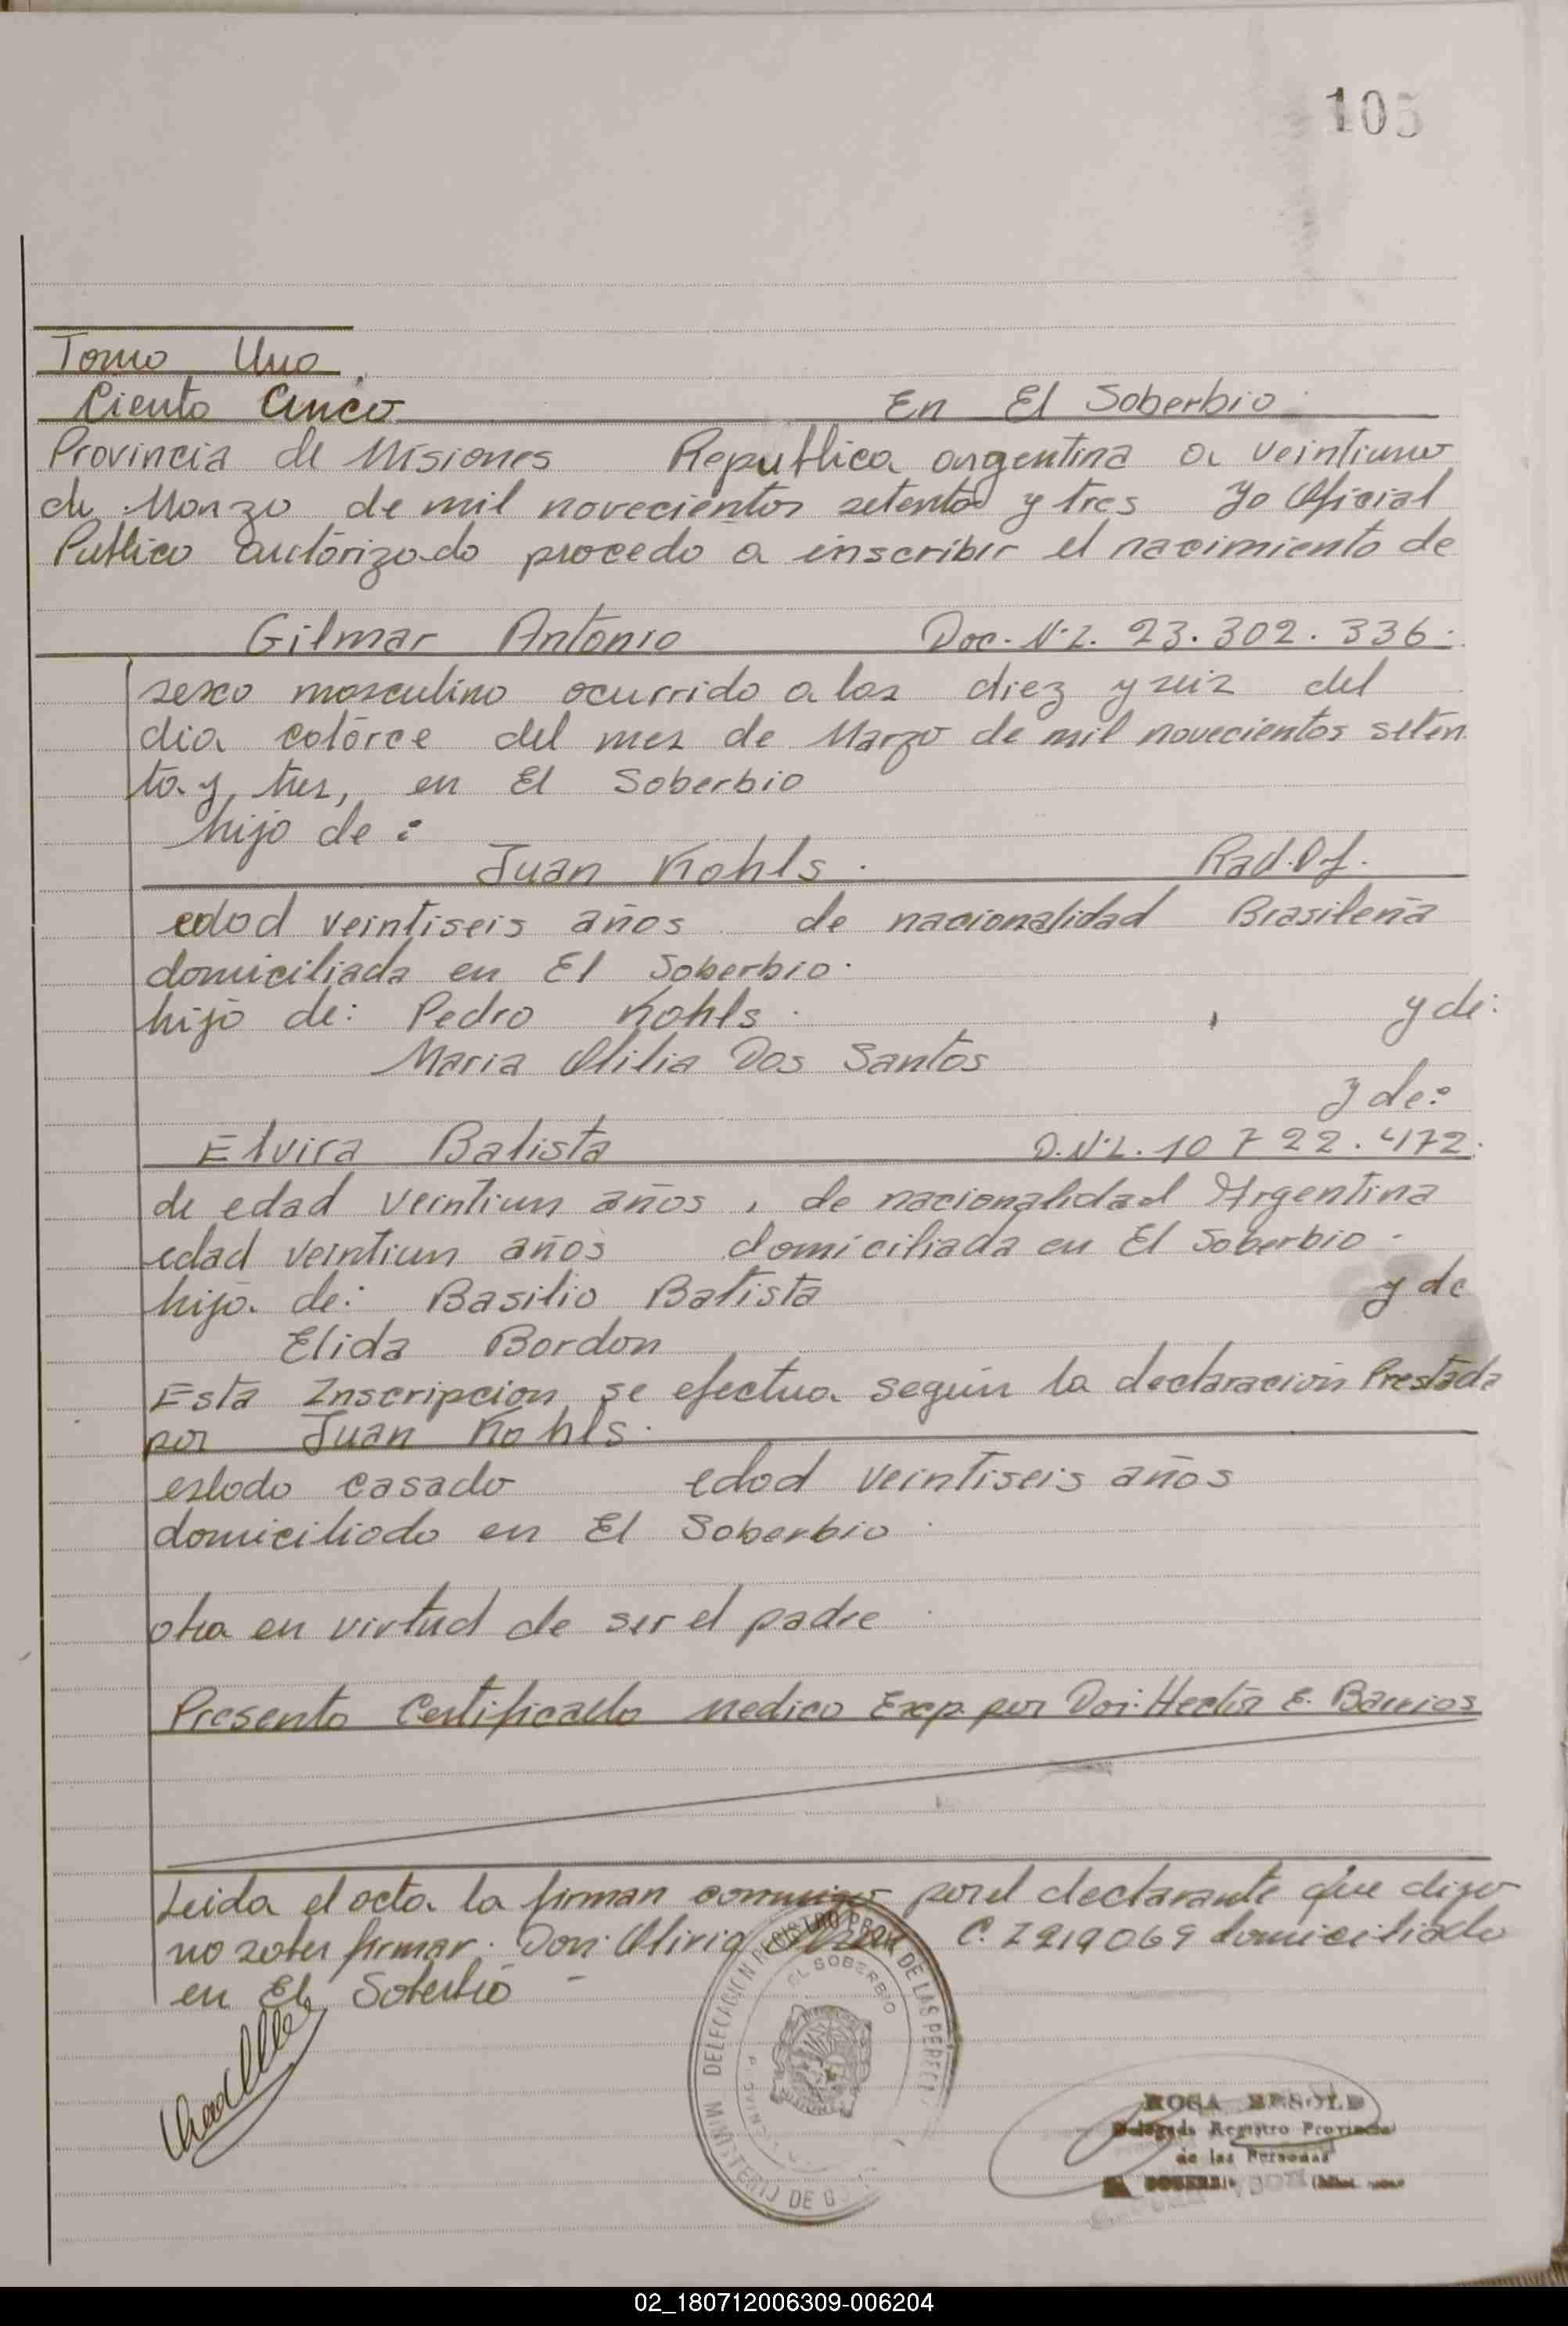 105
Tomo Uno
Ciento Cinco En El Soberbio
Provincia de Misiones Republica argentina a veintiuno
de Marzo de mil novecientos setenta y tres yo Oficial
Publico autórizado procedo a inscribir el nacimiento de
Gilmar Antonio Doc. N.I. 23.302.336.
sexo masculino ocurrido a las diez y seis del
dia catorce del mes de Marzo de mil novecientos seten
ta y tres, en El Soberbio
hijo de:
Juan Kohls. Rad.
edad veintiseis años de nacionalidad Brasileña
domiciliada en El Soberbio.
hijo de: Pedro Kohls. y de:
Maria Dos Santos
y de:
Elvira Batista D.N.I. 10 722.472.
de edad veintiun años, de nacionalidad Argentina
edad veintiun años domiciliada en El Soberbio.
hija de: Basilio Batista y de
Elida Bordon
Esta Inscripcion se efectua según la declaración Prestada
por Juan Kohls.
estado casado edad veintiseis años
domiciliado en El Soberbio.
obra en virtud de ser el padre
Presento Certificado medico Exp. por Don: Hector E. Barrios
Leida el acta la firman conmigo por el declarante que dijo
no saber firmar. Don: C.I 219069 domiciliado
en El Soberbio
MINISTERIO DE DELEGACION REGISTRO PROV. DE LAS
EL SOBERBIO
ROSA
Delegada Registro Provincial
de las Personas
02_180712006309-006204